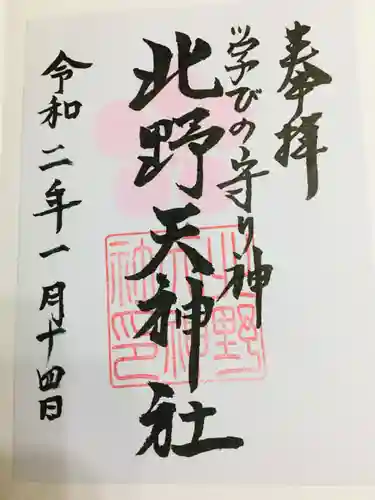 奉拝
学びの守り神
北野天神社
令和二年一月十四日
北野天神社印